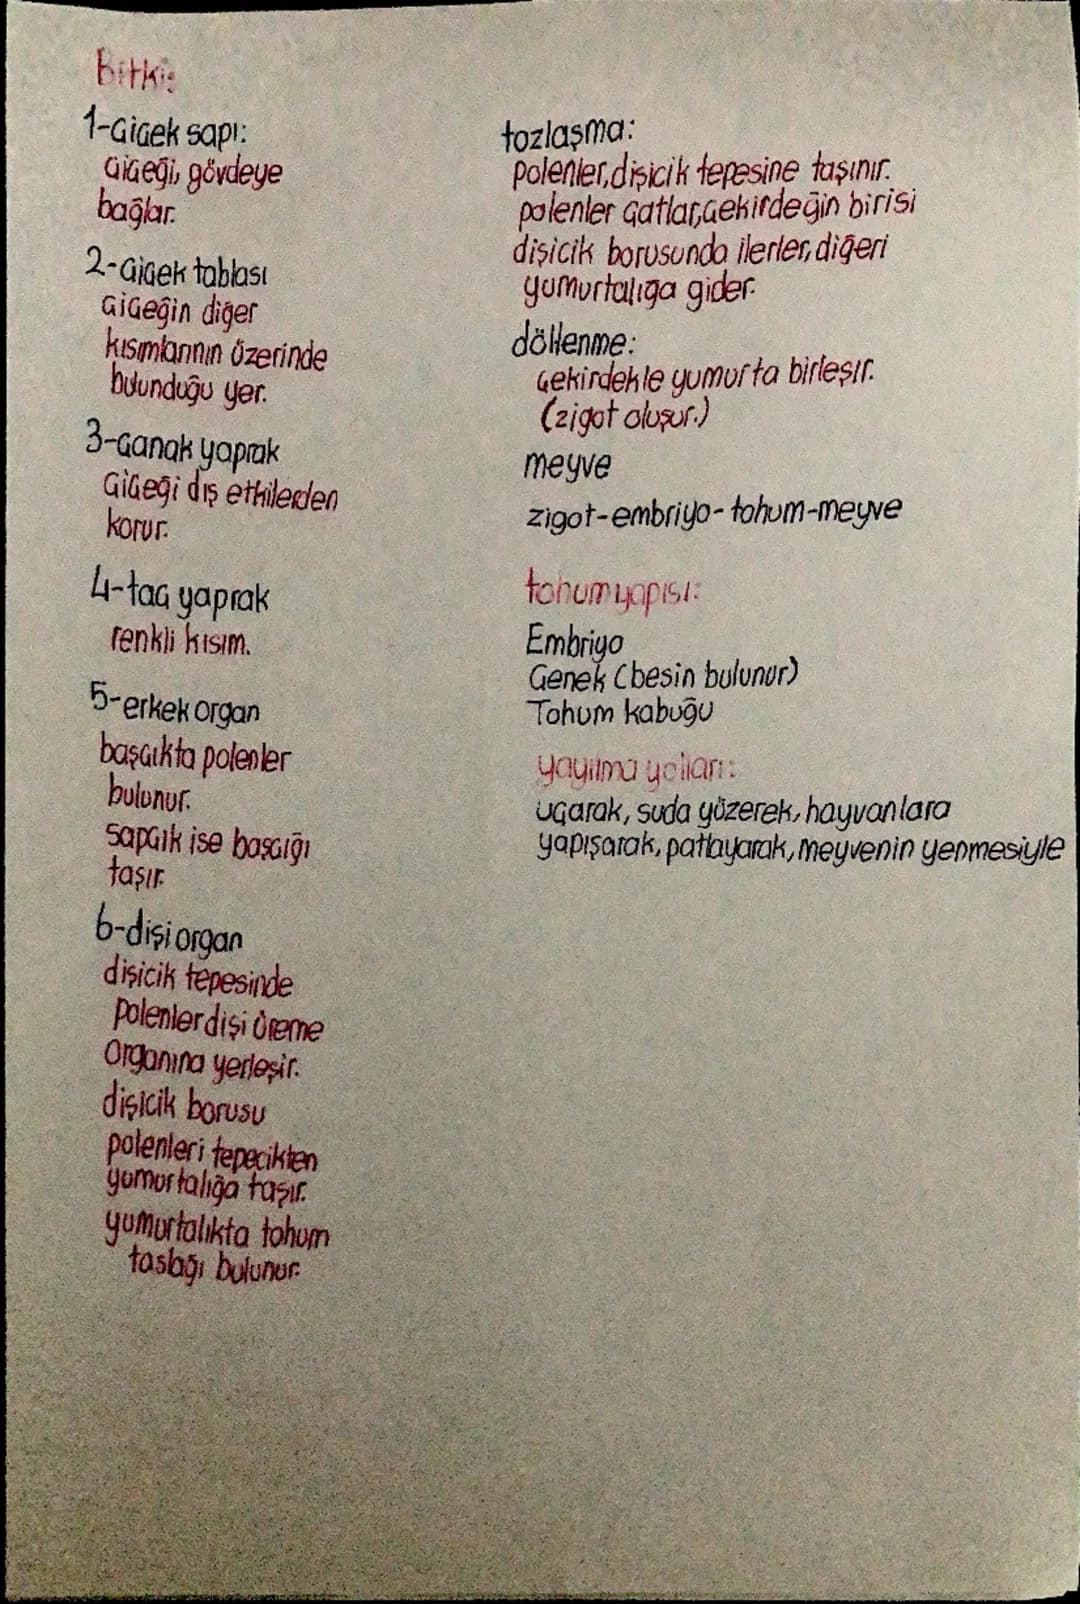 Bitki:
1-çiçek sapı:
çiçeği, gövdeye
bağlar.
2-çiçek tablası
çiçeğin diğer
kısımlarının üzerinde
bulunduğu yer.
3-çanak yaprak
çiçeği dış etkilerden
korur.
4-taç yaprak
renkli kısım.
5-erkek organ
başçıkta polenler
bulunur.
sapçık ise başçığı
taşır.
6-dişi organ
dişicik tepesinde
polenler dişi üreme
organına yerleşir.
dişicik borusu
polenleri tepecikten
yumurtalığa taşır.
yumurtalıkta tohum
taslağı bulunur.
tozlaşma:
polenler, dişicik tepesine taşınır.
polenler çatlar, çekirdeğin birisi
dişicik borusunda ilerler, diğeri
yumurtalığa gider.
döllenme:
çekirdekle yumurta birleşir.
(zigot oluşur.)
meyve
zigot-embriyo-tohum-meyve
tohum yapısı:
Embriyo
Çenek (besin bulunur)
Tohum kabuğu
yayılma yolları:
uçarak, suda yüzerek, hayvanlara
yapışarak, patlayarak, meyvenin yenmesiyle